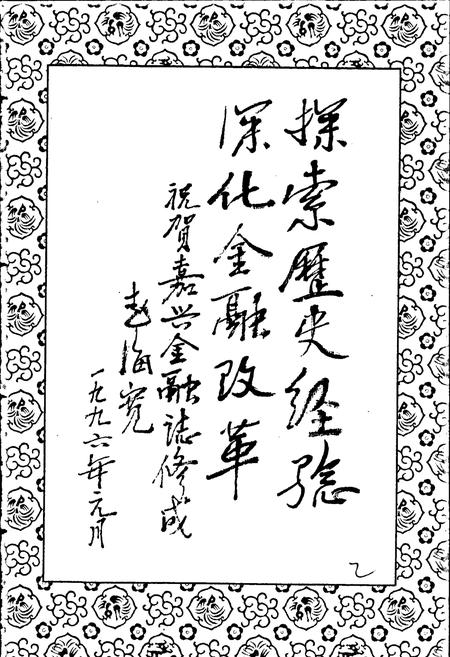 探索歷史经驗
深化金融改革
祝贺嘉兴金融誌修成
赵海宽
一九九六年元月
乙